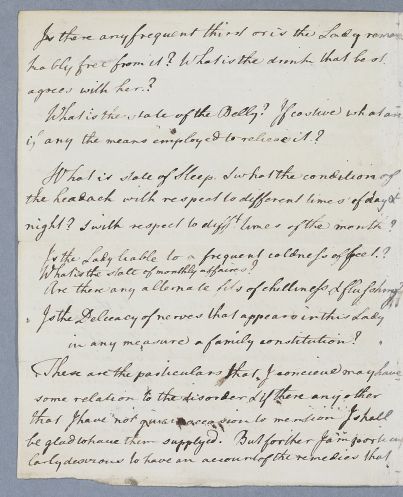 Is there any frequent thirst or is the Lady remar
kably free from it? What is the drink that best
agrees with her?
What is the state of the Belly? If costive what are
if any the means employed to relieve it?
What is state of Sleep. & what the condition of
the headach with respect to different times of day &
night? & with respect to diff.t times of the month?
Is the Lady liable to a frequent coldness of feet?
What is the state of monthly affaires?
Are there any alternate fits of chilliness & flushings
Is the Delicacy of nerves that appears in this Lady
in any measure a family constitution?
These are the particulars that I conceive may have
some relation to the disorder & if there any other
that I have not occasion to mention I shall
be glad to have them supplyed. But further I am particu
larly desirous to have an account of the remedies that